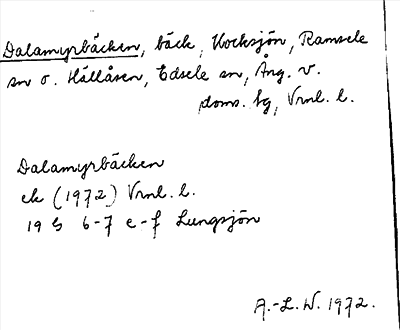 Dalamyrbäcken, bäck, Kocksjön, Ramsele
sn o. Hållåsen, Edsele sn, Ång. v.
doms. bg, Vrnl. l.
Dalamyrbäcken
ek (1972) Vrnl. l.
19 G 6-7 e-f Lungsjön
A.-L. W. 1972.